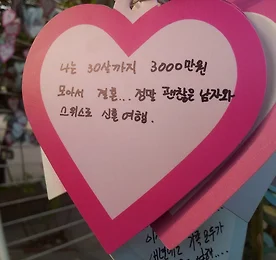 나는 30살까지 3000만원
모아서 결혼... 정말 괜찮은 남자와
스위스로 신혼여행.